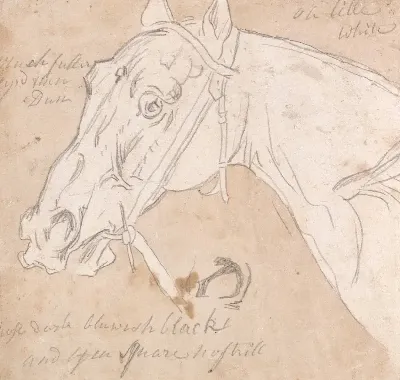 on little
white
much fuller
eyd than
Dun
nose dark bluewish black
and open square nostrill